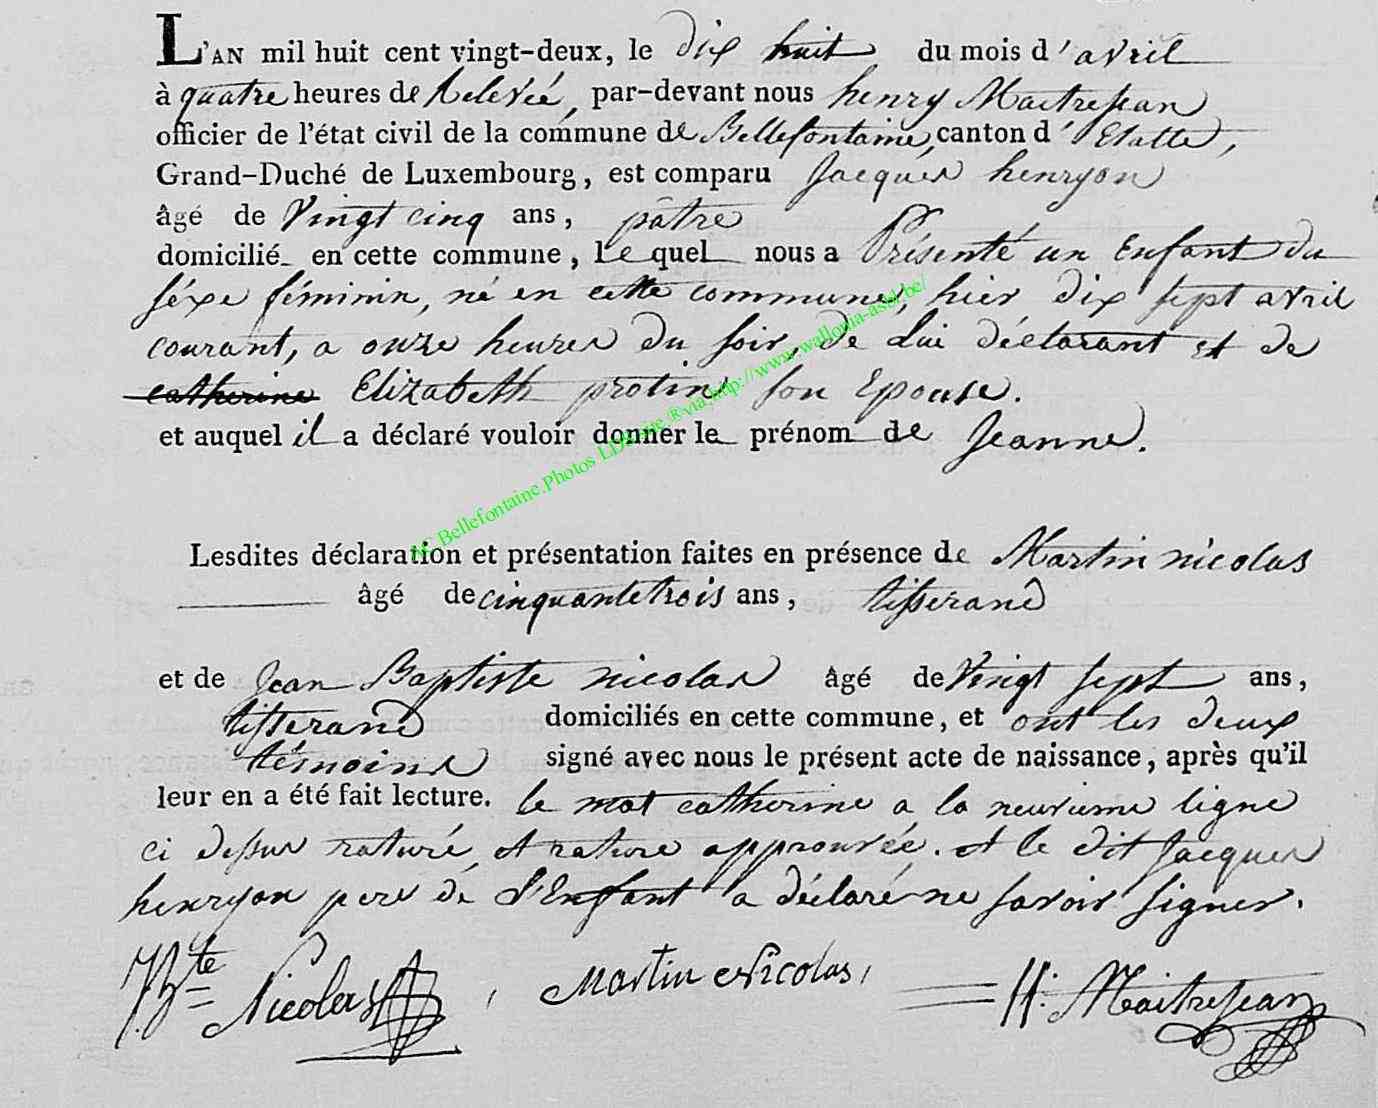 L'AN mil huit cent vingt-deux, le dix huit du mois d'avril
à quatre heures de Relevée, par-devant nous henry Maitrejean
officier de l'état civil de la commune de Bellefontaine, canton d'Etalle,
Grand-Duché de Luxembourg, est comparu Jacques henryon
âgé de Vingt cinq ans, pâtre
domicilié en cette commune, le quel nous a Présenté un Enfant du
séxe féminin, né en cette commune, hier dix sept avril
courant, a onze heures du soir, de Lui déclarant et de
catherine Elizabeth protin son Epouse.
et auquel il a déclaré vouloir donner le prénom de Jeanne.
AC Bellefontaine.Photos LDB site ®via http://www.wallonia-asbl.be/
Lesdites déclaration et présentation faites en présence de Martin nicolas
âgé de cinquante trois ans, tisserand
et de Jean Baptiste nicolas âgé de Vingt sept ans,
tisserand domiciliés en cette commune, et ont les deux
témoins signé avec nous le présent acte de naissance, après qu'il
leur en a été fait lecture. le mot catherine a la neuvieme ligne
ci dessus raturé, et rature approuvée. et le dit Jacques
henryon pere de L'Enfant a déclaré ne savoir signer.
JBte Nicolas, Martin Nicolas, H: MaitreJean